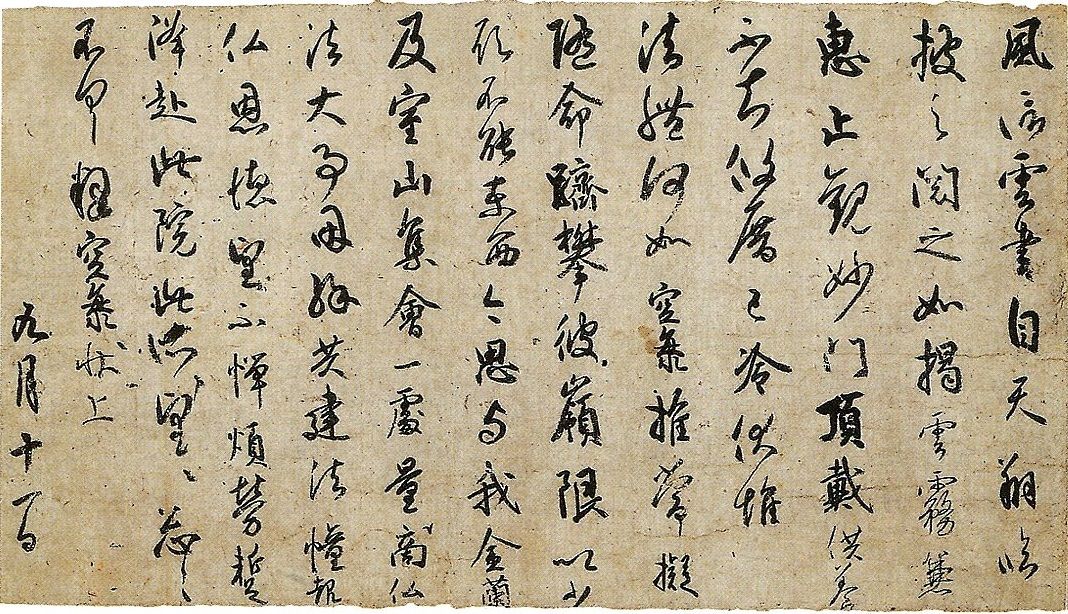 風信雲書自天翔臨
披之閲之如揭雲霧兼
惠止觀妙門頂戴供養
不知攸厝已冷伏惟
法體何如空海推常擬
隨命躋攀彼嶺限以少
願不能東西今思与我金蘭
及室山集會一處量商仏
法大事因緣共建法幢報
仏恩德望不憚煩勞蹔
降赴此院此所望々々忩々
不具釋空海状上
九月十一日